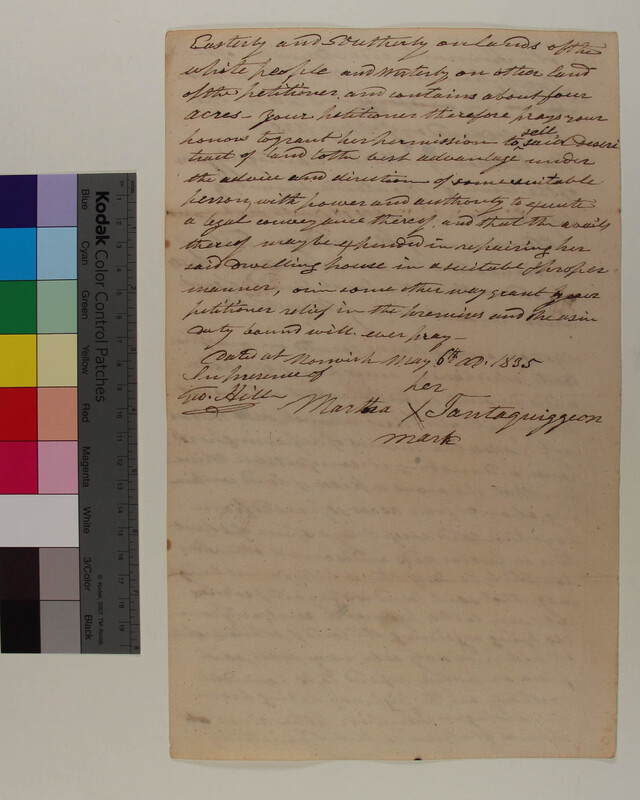 Easterly and Southerly on lands of the
white people and Westerly on other land
of the petitioner and contains about four
acres – Your petitioner therefore prays your
honors to grant her permission to sell said descri
tract of land to the best advantage under
the advice and direction of some suitable
person, with power and authority to execute
a legal conveyance thereof, and that the avails
thereof may be expended in repairing her
said dwelling house in a suitable & proper
manner, or in some other way grant your
petitioner relief in the premises and she as in
duty bound will ever pray –
Dated at Norwich May 6th AD. 1835
In presence of
Geo. Hill
her
Martha X Tantaquiggeon
mark
Kodak Color Control Patches
Blue
Cyan
Green
Yellow
Red
Magenta
White
3/Color
Black